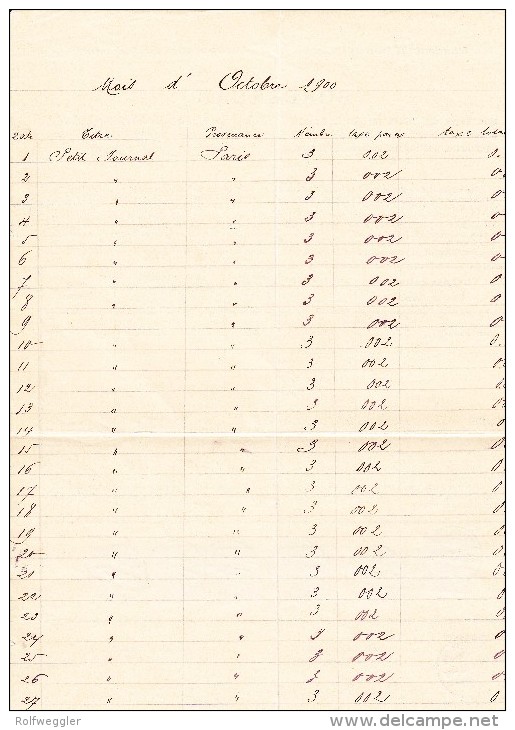 Mois d' Octobre 1900
Date Titre Provenance Nombre taxe par ex taxe totale
1 Petit Journal Paris 3 002 0.
2 " 3 002 0
3 " " 3 002 0
4 " " 3 002 0
5 " " 3 002 0
6 " " 3 002 0
7 " " 3 002 0
8 " " 3 002 0
9 " 3 002 0
10 " " 3 002 0
11 " " 3 002 0
12 " " 3 002 0
13 " " 3 002 0
14 " " 3 002 0
15 " " 3 002 0
16 " " 3 002 0
17 " " 3 002 0
18 " " 3 002 0
19 " " 3 002 0
20 " " 3 002 0
21 " " 3 002 0
22 " " 3 002 0
23 " " 3 002 0
24 " " 3 002 0
25 " " 3 002 0
26 " " 3 002 0
27 " " 3 002 0
Rolfweggler delcampe.net